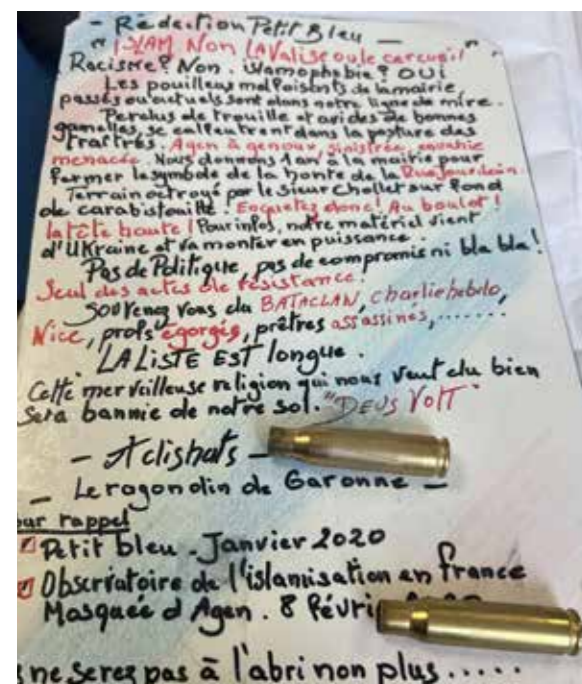 - Rédaction Petit Bleu -
" ISLAM Non LAValise ou le cercueil "
Raciste? Non. islamophobie? OUI
Les pouilleux malfaisants de la mairie,
passés ou actuels sont dans notre ligne de mire.
Perclus de trouille et avides de bonnes
gamelles, se calfeutrent dans la posture des
traîtres. Agen à genoux, sinistrée, envahie
menacée. Nous donnons 1 an à la mairie pour
fermer le symbole de la honte de la Rue Jourdain.
Terrain octroyé par le Sieur Chollet sur fond
de carabistouille. Enquetez donc! Au boulot!
la tête haute! Pour infos, notre matériel vient
d'UKraine et va monter en puissance.
Pas de Politique, pas de compromis ni bla bla!
Seul des actes de résistance.
Souvenez vous du BATACLAN, Charlie hebdo,
Nice, profs égorgés, prêtres assassines, .......
LA LiSTE EST longue.
Cette merveilleuse religion qui nous veut du bien
Sera bannie de notre sol. "DEUS VOLT"
- Actishats -
- Le ragondin de Garonne -
our rappel
Petit bleu - Janvier 2020
Observatoire de l'islamisation en france
Mosquée d Agen. 8 Févri
ne serez pas à l'abri non plus .....